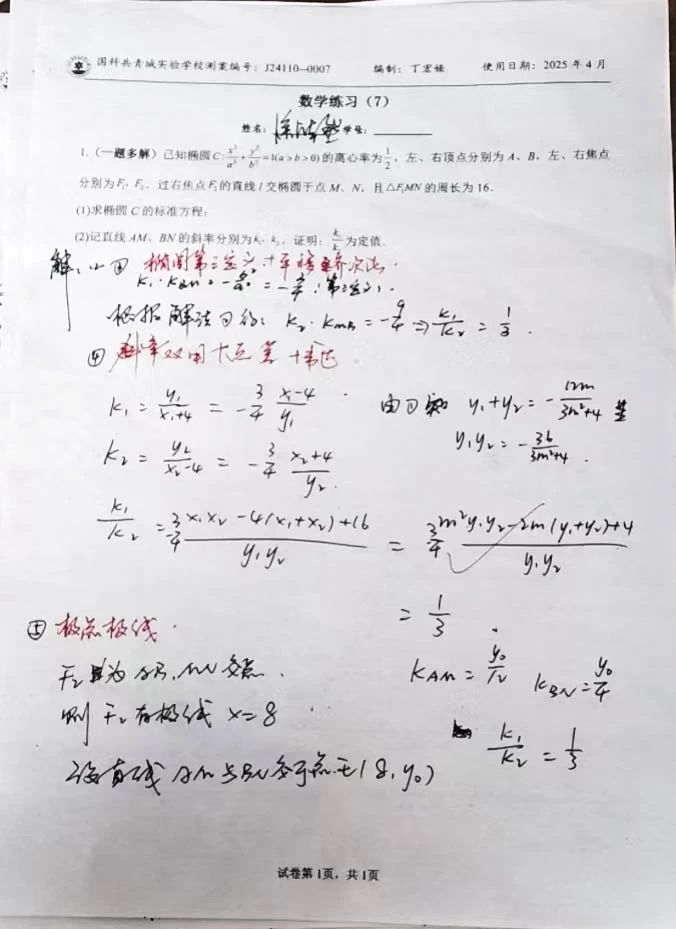 国科共青城实验学校测案编号：J24110—0007 编制：丁宏娃 使用日期：2025 年 4 月
数学练习（7）
姓名： 学号：
1.（一题多解）已知椭圆 C: x²/a² + y²/b² =1(a > b > 0) 的离心率为 1/2，左、右顶点分别为 A、B，左、右焦点
分别为 F₁、F₂，过右焦点 F₂ 的直线 l 交椭圆于点 M、N，且△F₁MN 的周长为 16.
(1)求椭圆 C 的标准方程；
(2)记直线 AM、BN 的斜率分别为 k₁、k₂，证明：k₁/k₂ 为定值.
解： (2) ③ 椭圆第三定义 + 平移齐次法.
k₁·k_BM = = -3/4 (第三定义).
根据解法①得： k₂·k_MB = -9/4 ⇒ k₁/k₂ = 1/3 .
④ 斜率双用 + 韦达
k₁ = y₁/(x₁+4) = -3/4 (x₁-4)/y₁
由①知 y₁+y₂ = -12m/(3m²+4)
k₂ = y₂/(x₂-4) = -3/4 (x₂+4)/y₂ .
y₁y₂ = -36/(3m²+4) .
k₁/k₂ = 3/4 (x₁x₂ -4(x₁+x₂)+16)/(y₁y₂) = 3/4 (m²y₁y₂-2m(y₁+y₂)+4)/(y₁y₂)
= 1/3
⑤ 极点极线 .
F₂ 为 AB, MN 交点 .
k_AM = y₀/12 k_BN = y₀/4
则 F₂ 有极线 x=8
k₁/k₂ = 1/3
设直线 AM 与 BN 交于点 E(8, y₀)
试卷第 1页，共 1页